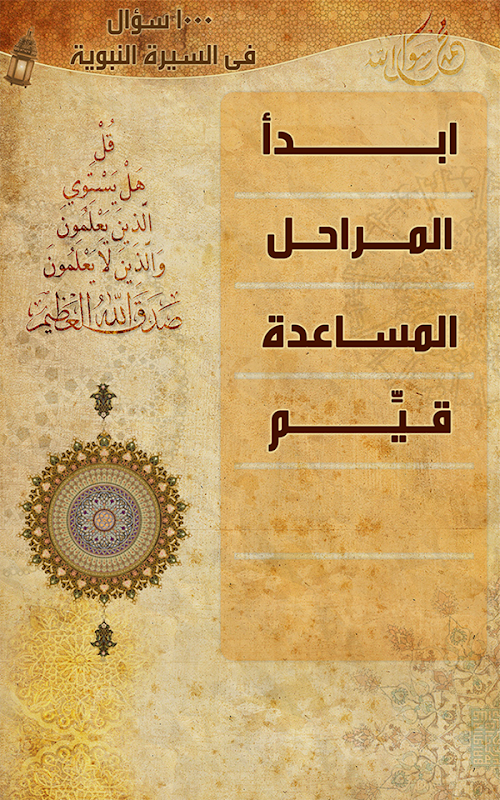 ١٠٠٠ سؤال
فى السيرة النبوية
محمد رسول الله
ابـــدأ
المـراحـل
المسـاعدة
قـيِّـــم
قُلْ
هَلْ يَسْتَوِي
الَّذِينَ يَعْلَمُونَ
وَالَّذِينَ لَا يَعْلَمُونَ
صَدَقَ اللَّهُ الْعَظِيمُ